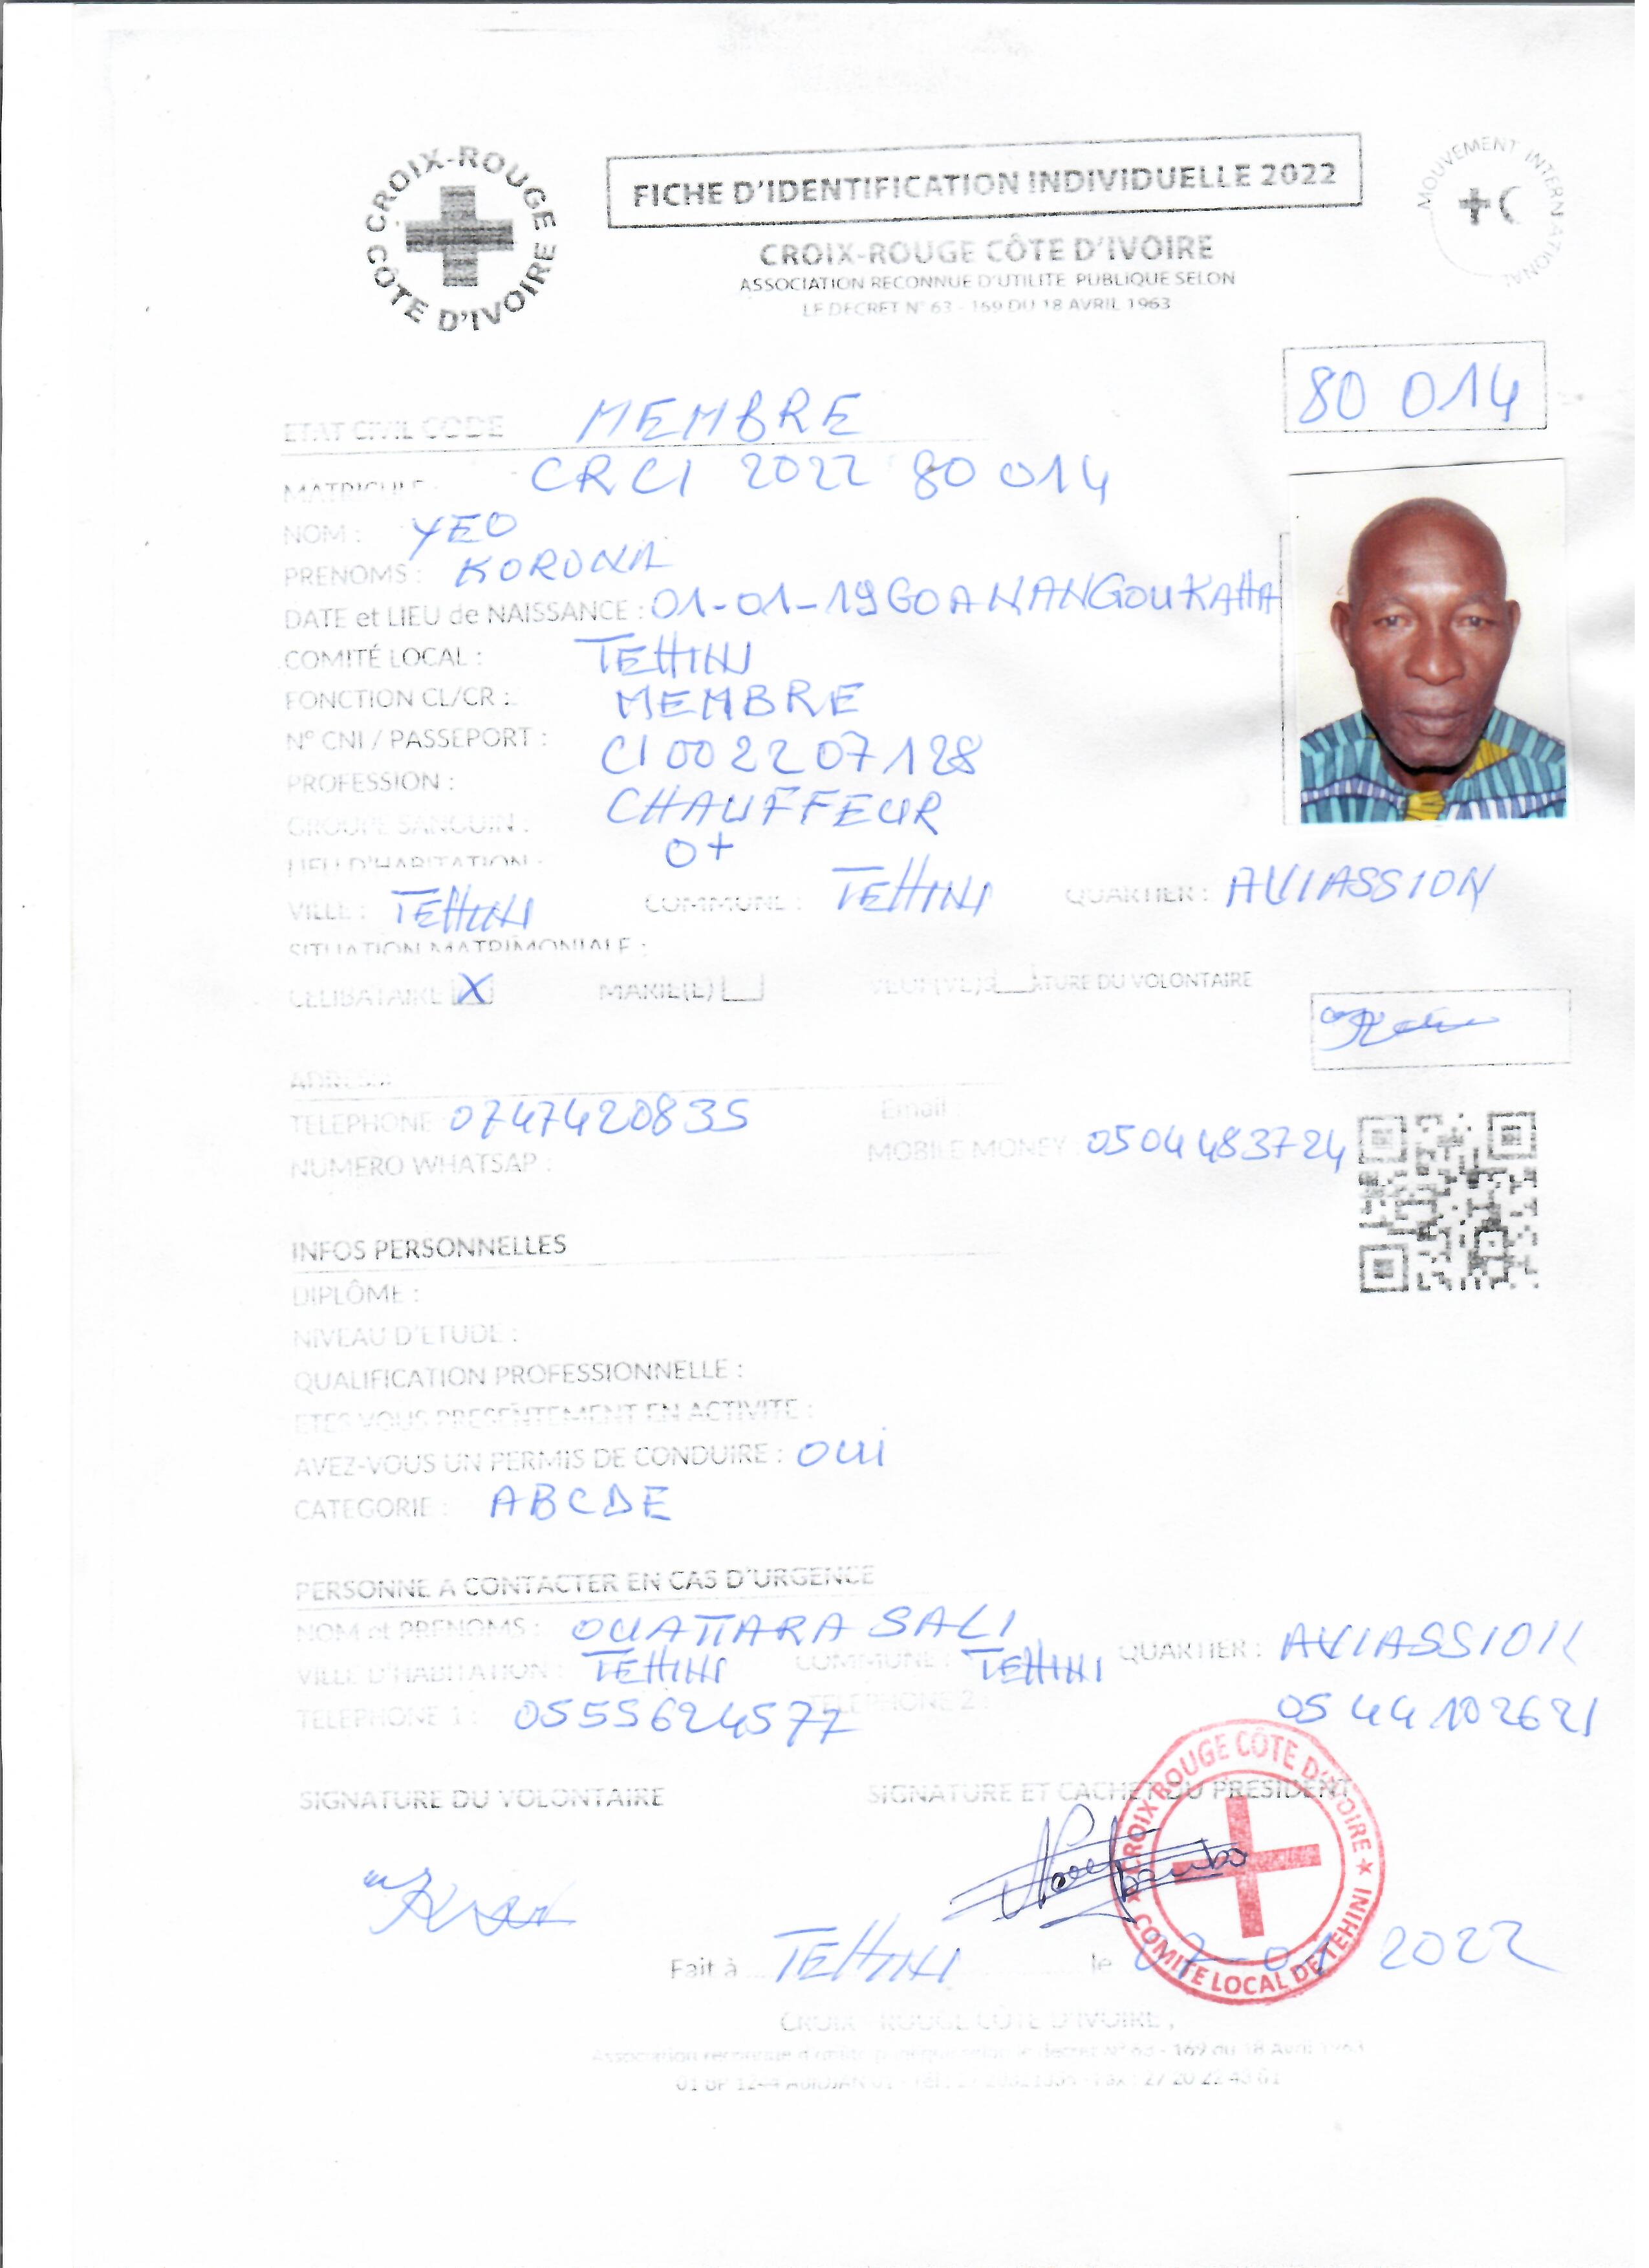 CROIX-ROUGE CÔTE D'IVOIRE
FICHE D'IDENTIFICATION INDIVIDUELLE 2022
MOUVEMENT INTERNATIONAL
CROIX-ROUGE CÔTE D'IVOIRE
ASSOCIATION RECONNUE D'UTILITE PUBLIQUE SELON
LE DECRET N° 63 - 169 DU 18 AVRIL 1963
80 014
ETAT CIVIL CODE MEMBRE
MATRICULE : CRCI 2022 80 014
NOM : YEO
PRENOMS : KORONA
DATE et LIEU de NAISSANCE : 01-01-1960 A NANGOUKAHA
COMITÉ LOCAL : TEHINI
FONCTION CL/CR : MEMBRE
N° CNI / PASSEPORT : CI 002207128
PROFESSION : CHAUFFEUR
GROUPE SANGUIN : O+
LIEU D'HABITATION :
VILLE : TEHINI COMMUNE : TEHINI QUARTIER : AVIASSION
SITUATION MATRIMONIALE :
CELIBATAIRE X MARIE(E) VEUF(VE) ATURE DU VOLONTAIRE
ADRESSE
TELEPHONE : 0747420835 Email :
NUMERO WHATSAP : MOBILE MONEY : 0504483724
INFOS PERSONNELLES
DIPLÔME :
NIVEAU D'ETUDE :
QUALIFICATION PROFESSIONNELLE :
ETES VOUS PRESENTEMENT EN ACTIVITE :
AVEZ-VOUS UN PERMIS DE CONDUIRE : OUI
CATEGORIE : ABCDE
PERSONNE A CONTACTER EN CAS D'URGENCE
NOM et PRENOMS : OUATTARA SALI
VILLE D'HABITATION : TEHINI COMMUNE : TEHINI QUARTIER : AVIASSION
TELEPHONE 1 : 0555624577 TELEPHONE 2 : 0544102621
SIGNATURE DU VOLONTAIRE SIGNATURE ET CACHET DU PRESIDENT
CROIX ROUGE CÔTE D'IVOIRE
COMITE LOCAL DE TEHINI
Fait à TEHINI le 07-01 2022
CROIX - ROUGE CÔTE D'IVOIRE,
Association reconnue d'utilité publique selon le decret N° 63 - 169 du 18 Avril 1963